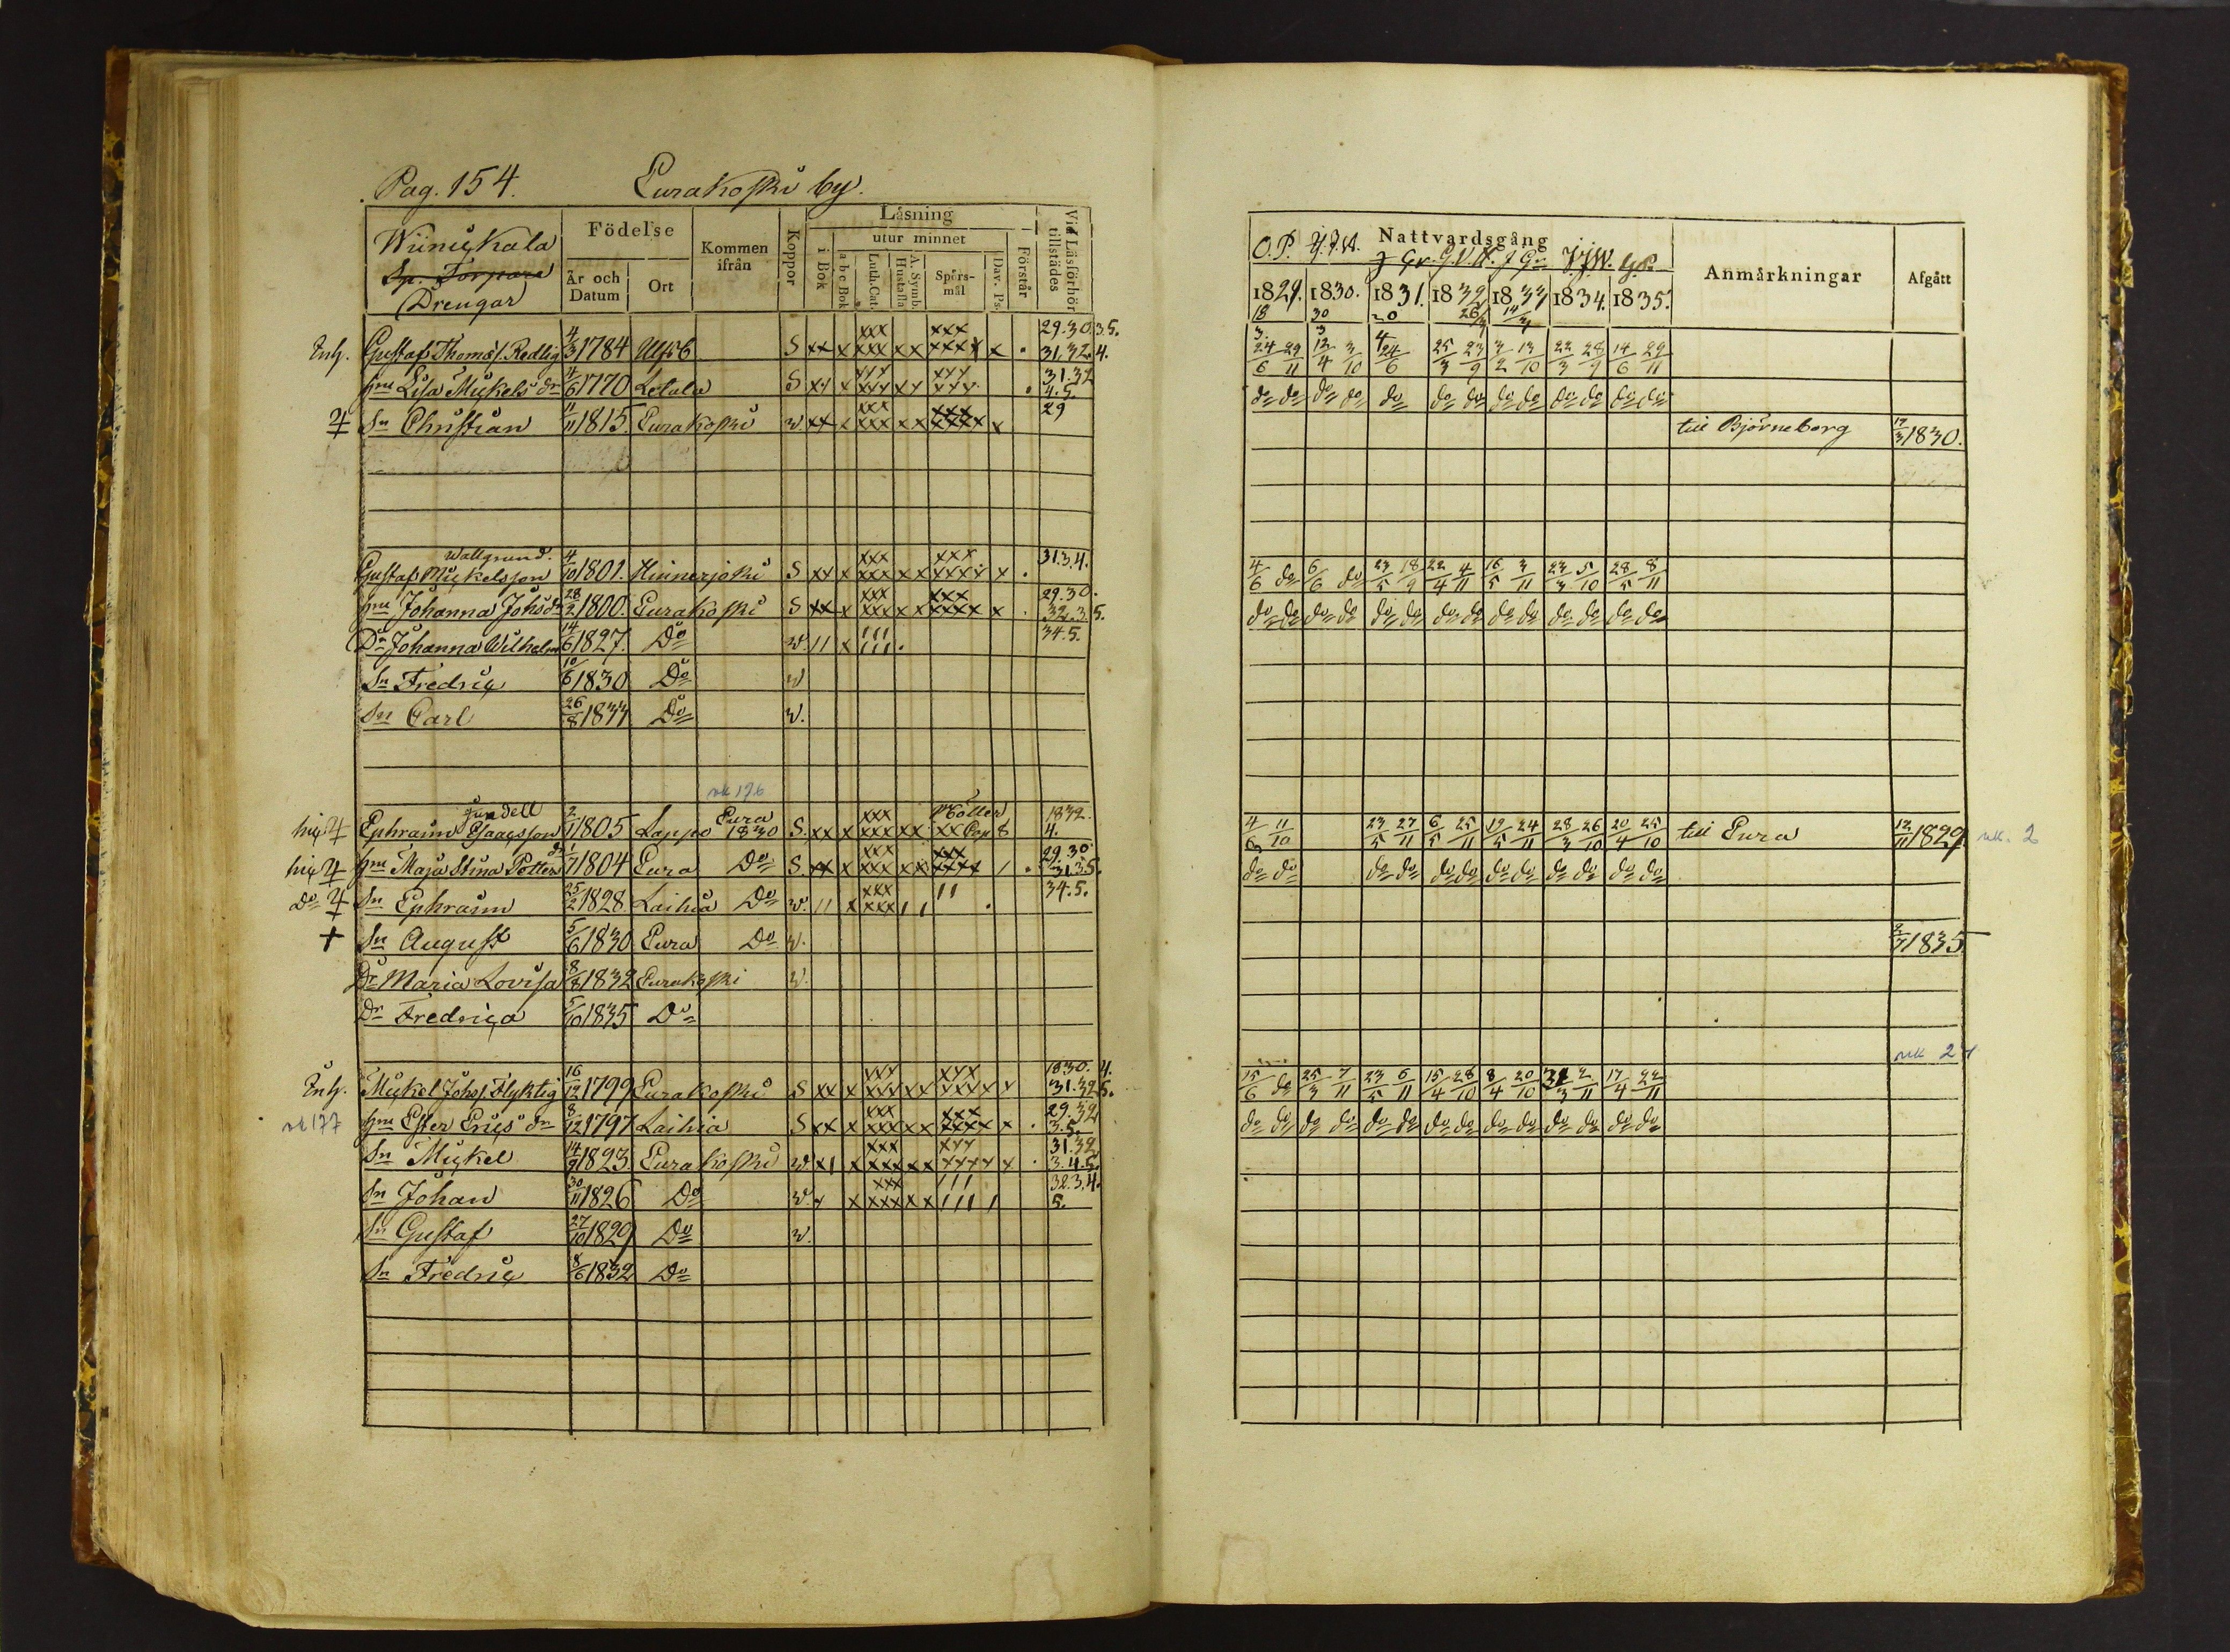 Pag. 154. Eurakoski by.
Wiinickala
Sp. Torpare
Drengar
Födelse
År och Datum
Ort
Kommen ifrån
Koppor
Läsning
utur minnet
i Bok
a b c Bok
Luth. Cat.
A. Symb. Hustafla
Spörsmål
Dav. Ps.
Förstår
Vid Läsförhör tillstädes
Enh. Gustaf Thomæs. Redlig 4/3 1784 Ulfsb S xx x xxx xxx xx xxx xxxx x . 29.30.35. 31.32.4.
hru Lisa Mickels dr 4/6 1770 Letala S xx x xxx xxx xx xxx xxx . 31.32 4.5.
Sn Christian 11/11 1815. Eurakoski w. xx x xxx xxx xx xxx xxxx x 29
Wallgrund
Gustaf Mickelsson 4/10 1801. Hinnerjoki S xx x xxx xxx xx xxx xxxx x . 31.3.4.
hru Johanna Johsdr 28/2 1800. Eurakoski S xx x xxx xxx xx xxx xxxx x . 29.30. 32.3.5.
Dr Johanna Wilhelm 14/6 1827. Do w. 11 x 111 111 . 34.5.
Sn Fredric 10/6 1830 Do w
Sn Carl 26/8 1833 Do w.
rk 176
Jundell
hic Ephraim Esaacsson 2/11 1805 Lappo Eura 1830 S. xx x xxx xxx xx xx Cap 8 1832. 4.
hic hru Maja Stina Potter dr 1/7 1804 Eura Do S. xx x xxx xxx xx xxx xxxx 1 . 29.30 31.35.
Do Sn Ephraim 25/2 1828. Laihia Do w. 11 x xxx xxx 11 11 . 34.5.
+ Sn August 5/6 1830 Eura Do w.
Dr Maria Lovisa 8/8 1832 Eurakoski w.
Dr Fredrica 5/10 1835 Do
Enh. Mickel Johs. Flyktig 16/12 1799 Eurakoski S xx x xxx xxx xx xxx xxxx x 1830. 4. 31.32.5.
rk 177 hru Ester Erics dr 8/12 1797 Laihia S xx x xxx xxx xx xxx xxxx x . 29.32 3.5.
Sn Mickel 14/9 1823. Eurakoski w. x1 x xxx xxx xx xxx xxxx x . 31.32 3.4.5.
Sn Johan 30/11 1826 Do w. x x xxx xxx xx 111 111 1 32.3.4. 5.
Sn Gustaf 27/10 1829 Do w.
Sn Fredric 8/6 1832 Do
Nattvardsgång
Anmärkningar
Afgått
O.P.
1829. 1830. 1831. 1832 1833 1834. 1835.
18 30 20 26/3
24/6 29/11 12/4 3/10 24/6 25/3 23/9 3/2 13/10 22/3 28/9 14/6 29/11
do do do do do do do do do do do do do
till Björneborg 17/3 1830.
4/6 do 6/6 do 23/5 18/9 22/4 4/11 16/5 3/11 23/3 5/10 28/5 8/11
do do do do do do do do do do do do do do
4/6 11/10 23/5 27/11 6/5 25/11 19/5 24/11 28/3 26/10 20/4 25/10 till Eura 12/11 1829 rk. 2
do do do do do do do do do do do do
2/7 1835
rk 21
15/6 do 25/3 7/11 23/5 6/11 15/4 28/10 8/4 20/10 31/3 2/11 17/4 22/11
do do do do do do do do do do do do do do